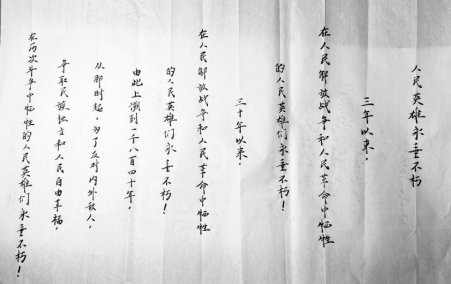 人民英雄永垂不朽
三年以来，
在人民解放战争和人民革命中牺牲
的人民英雄们永垂不朽！
三十年以来，
在人民解放战争和人民革命中牺牲
的人民英雄们永垂不朽！
由此上溯到一千八百四十年，
从那时起，为了反对内外敌人，
争取民族独立和人民自由幸福，
在历次斗争中牺牲的人民英雄们永垂不朽！